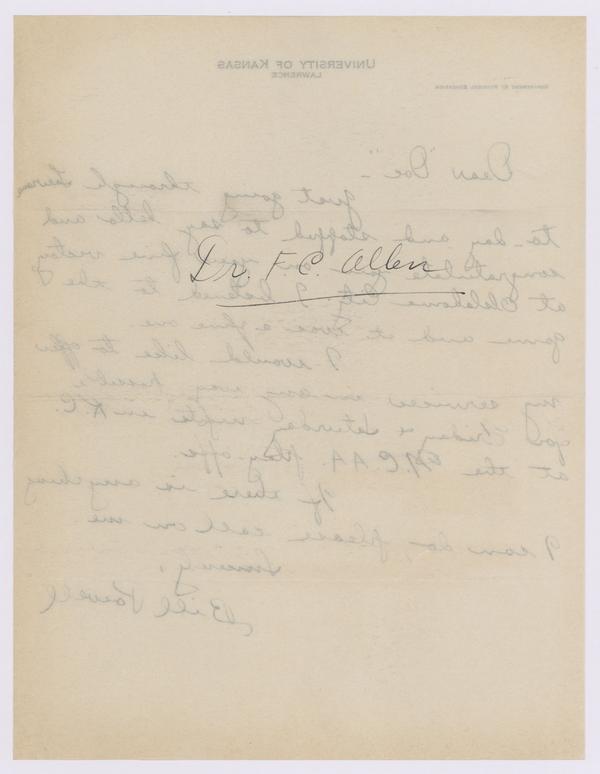 UNIVERSITY OF KANSAS
LAWRENCE
DEPARTMENT OF PHYSICAL EDUCATION
Dear "Doc" -
Just going through
to-day and stopped to say hello and
congratulate you on your fine victory
Dr. F. C. Allen
at Oklahoma City. I listened to the
game and it was a fine one.
I would like to offer
my services in any way possible
you Friday & Saturday nights in K.C.
at the N.C.A.A. play offs.
If there is anything
I can do, please call on me.
Sincerely,
Bill Powell